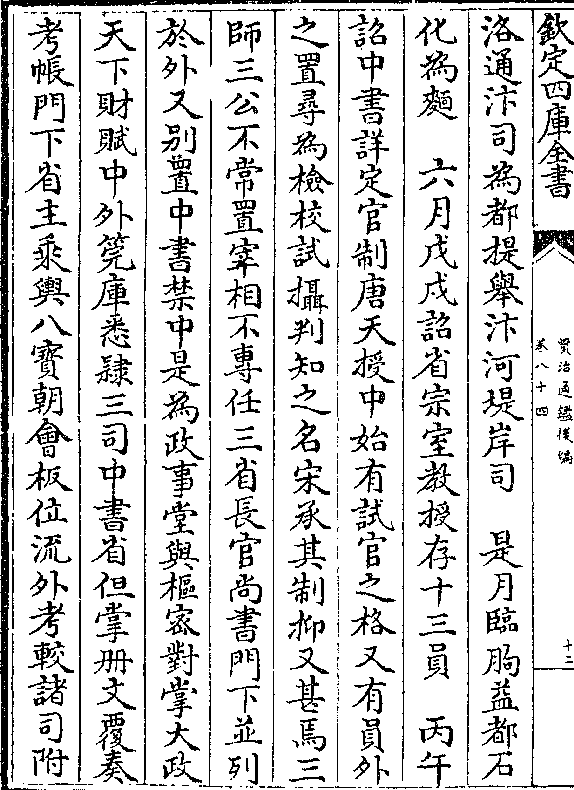 欽定四庫全書
資治通鑑後編
卷八十四
十三
洛通汴司為都提舉汴河堤岸司　是月臨朐益都石
化為麵　六月戊戌詔省宗室教授存十三員　丙午
詔中書詳定官制唐天授中始有試官之格又有員外
之置尋為檢校試攝判知之名宋承其制抑又甚焉三
師三公不常置宰相不專任三省長官尚書門下並列
於外又别置中書禁中是為政事堂與樞密對掌大政
天下財賦中外筦庫悉隸三司中書省但掌册文覆奏
考帳門下省主乘輿八寶朝會板位流外考較諸司附